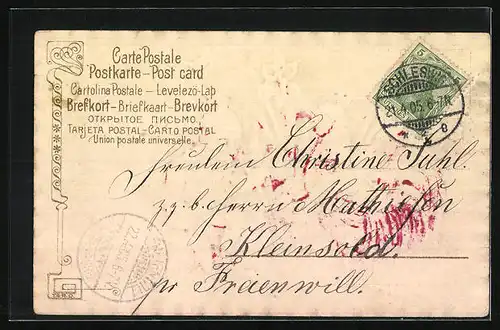 Carte Postale
Postkarte – Post card
Cartolina Postale – Levelező-Lap
Brefkort – Briefkaart – Brevkort
ОТКРЫТОЕ ПИСЬМО
TARJETA POSTAL – CARTO POSTAL
Union postale universelle.
5 5
SCHLESWIG
4 05 6-7N
Fräulein Christine Juhl
z. z. b. Herrn Mathiesen
Kleinsolt.
pr Fraenwill.
22.4